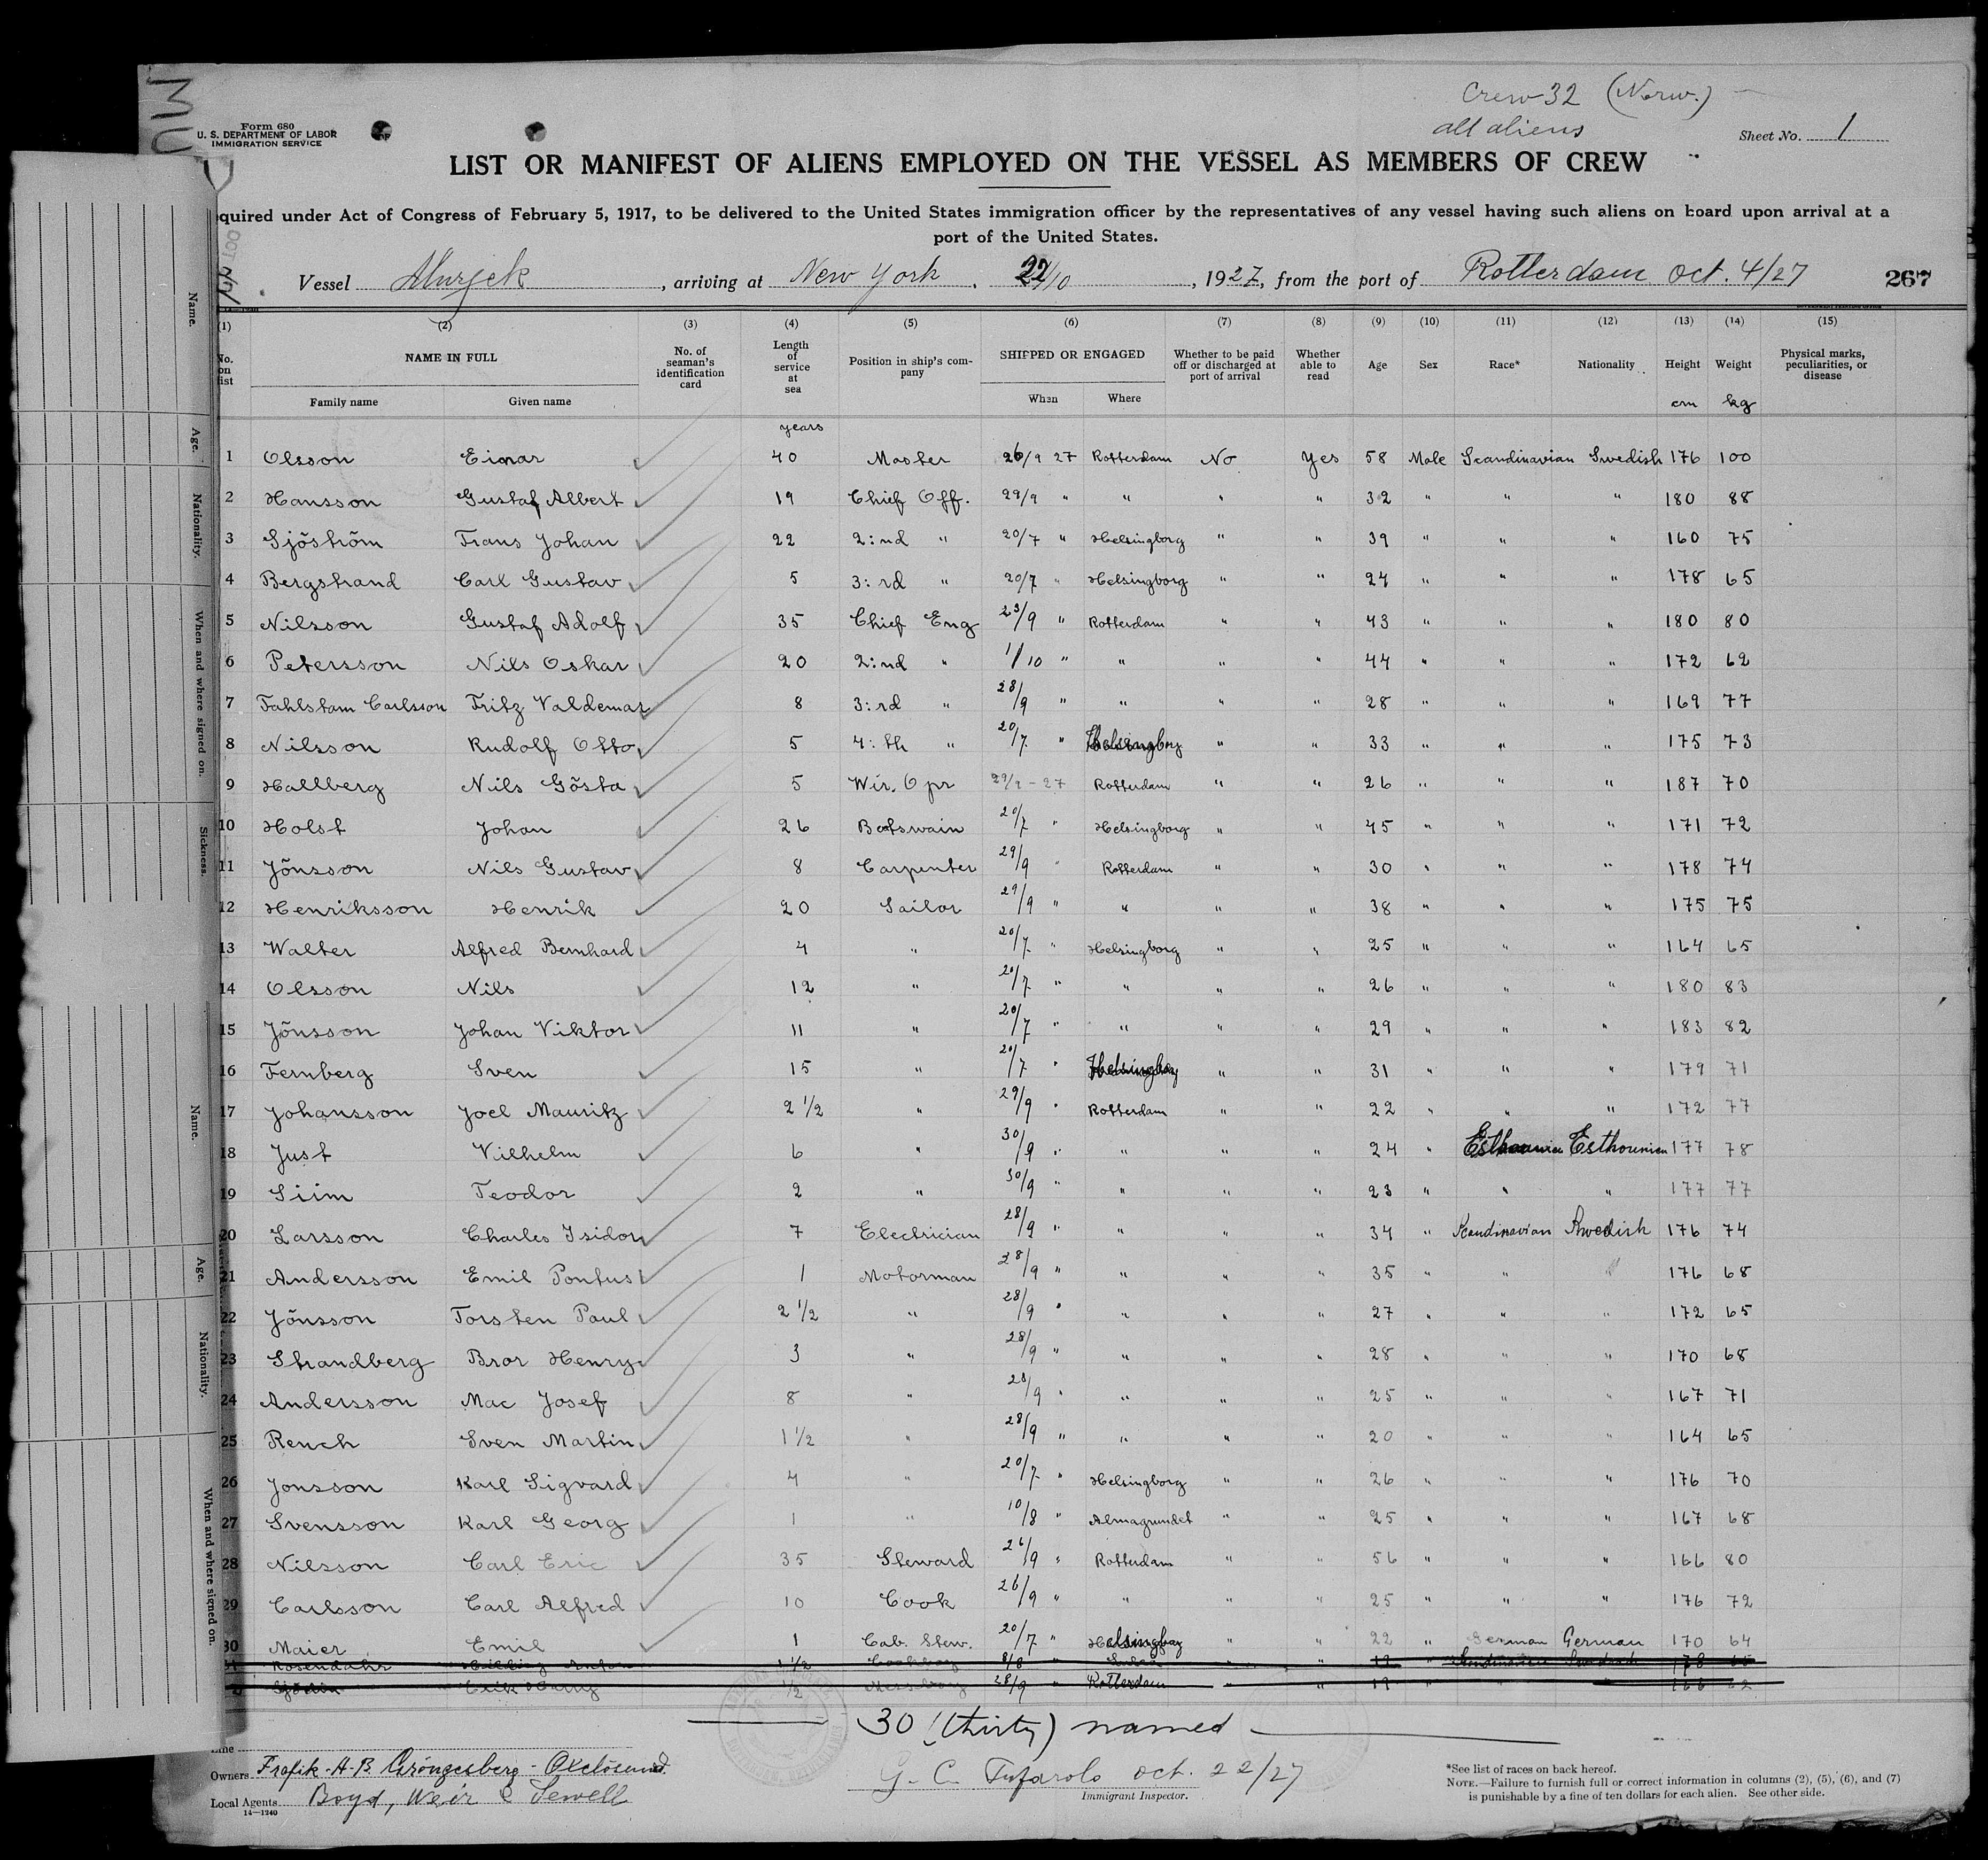 Crew 32 (Norw.)
all aliens
Form 680
U. S. DEPARTMENT OF LABOR
IMMIGRATION SERVICE
Sheet No. 1
LIST OR MANIFEST OF ALIENS EMPLOYED ON THE VESSEL AS MEMBERS OF CREW
quired under Act of Congress of February 5, 1917, to be delivered to the United States immigration officer by the representatives of any vessel having such aliens on board upon arrival at a
port of the United States.
Vessel Murjek, arriving at New York. 22/10, 1927, from the port of Rotterdam Oct. 4/27 267
(1) (2) (3) (4) (5) (6) (7) (8) (9) (10) (11) (12) (13) (14) (15)
No. on list NAME IN FULL Family name Given name No. of seaman's identification card Length of service at sea Position in ship's company SHIPPED OR ENGAGED When Where Whether to be paid off or discharged at port of arrival Whether able to read Age Sex Race* Nationality Height Weight Physical marks, peculiarities, or disease
years cm kg
1 Olsson Einar 40 Master 26/9 27 Rotterdam No Yes 58 Male Scandinavian Swedish 176 100
2 Hansson Gustaf Albert 19 Chief Off. 29/9 " " " " 32 " " " 180 88
3 Sjöström Frans Johan 22 2:nd " 20/7 " Helsingborg " " 39 " " " 160 75
4 Bergstrand Carl Gustav 5 3:rd " 20/7 " Helsingborg " " 24 " " " 178 65
5 Nilsson Gustaf Adolf 35 Chief Eng 23/9 " Rotterdam " " 43 " " " 180 80
6 Petersson Nils Oskar 20 2:nd " 1/10 " " " " 44 " " " 172 62
7 Fahlstam Carlsson Fritz Valdemar 8 3:rd " 28/9 " " " " 28 " " " 169 77
8 Nilsson Rudolf Otto 5 4:th " 20/7 " Helsingborg " " 33 " " " 175 73
9 Hallberg Nils Gösta 5 Wir. Opr 29/9 - 27 Rotterdam " " 26 " " " 187 70
10 Holst Johan 26 Botswain 20/7 " Helsingborg " " 45 " " " 171 72
11 Jönsson Nils Gustav 8 Carpenter 29/9 " Rotterdam " " 30 " " " 178 74
12 Henriksson Henrik 20 Sailor 29/9 " " " " 38 " " " 175 75
13 Walter Alfred Bernhard 4 " 20/7 " Helsingborg " " 25 " " " 164 65
14 Olsson Nils 12 " 20/7 " " " " 26 " " " 180 83
15 Jönsson Johan Viktor 11 " 20/7 " " " " 29 " " " 183 82
16 Fernberg Sven 15 " 20/7 " Helsingborg " " 31 " " " 179 71
17 Johansson Joel Mauritz 2 1/2 " 29/9 " Rotterdam " " 22 " " " 172 77
18 Just Vilhelm 6 " 30/9 " " " " 24 " Esthounian Esthounian 177 78
19 Siim Teodor 2 " 30/9 " " " " 23 " " " 177 77
20 Larsson Charles Isidor 7 Electrician 28/9 " " " " 34 " Scandinavian Swedish 176 74
21 Andersson Emil Pontus 1 Motorman 28/9 " " " " 35 " " " 176 68
22 Jönsson Torsten Paul 2 1/2 " 28/9 " " " " 27 " " " 172 65
23 Strandberg Bror Henry 3 " 28/9 " " " " 28 " " " 170 68
24 Andersson Mac Josef 8 " 28/9 " " " " 25 " " " 167 71
25 Rench Sven Martin 1 1/2 " 28/9 " " " " 20 " " " 164 65
26 Jonsson Karl Sigvard 4 " 20/7 " Helsingborg " " 26 " " " 176 70
27 Svensson Karl Georg 1 " 10/8 " Almagrundet " " 25 " " " 167 68
28 Nilsson Carl Eric 35 Steward 26/9 " Rotterdam " " 56 " " " 166 80
29 Carlsson Carl Alfred 10 Cook 26/9 " " " " 25 " " " 176 72
30 Maier Emil 1 Cab. Stew. 20/7 " Helsingborg " " 22 " German German 170 64
Rosendahr 1 1/2 8/8 " " " 178
Erik Harry 1/2 28/9 " Rotterdam " " 166 62
30 (thirty) named
Line
Owners Trafik-A-B. Grängesberg - Oxelösund.
Local Agents Boyd, Weir & Sewell
14—1240
G. C. Tufarolo Oct. 22/27
Immigrant Inspector.
*See list of races on back hereof.
NOTE.—Failure to furnish full or correct information in columns (2), (5), (6), and (7)
is punishable by a fine of ten dollars for each alien. See other side.
Name.
Age.
Nationality.
When and where signed on.
Sickness.
Name.
Age.
Nationality.
When and where signed on.